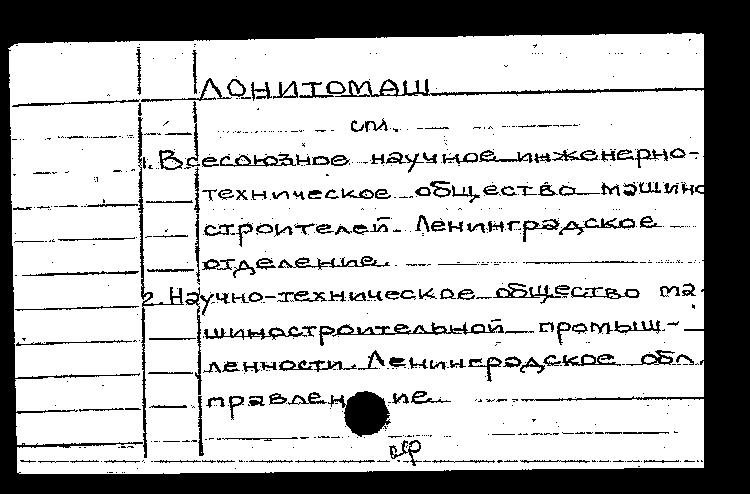 ЛОНИТОМАШ
см.
1. Всесоюзное научное инженерно-
техническое общество машино
строителей. Ленинградское
отделение.
2. Научно-техническое общество ма-
шиностроительной промыш-
ленности. Ленинградское обл.
правление